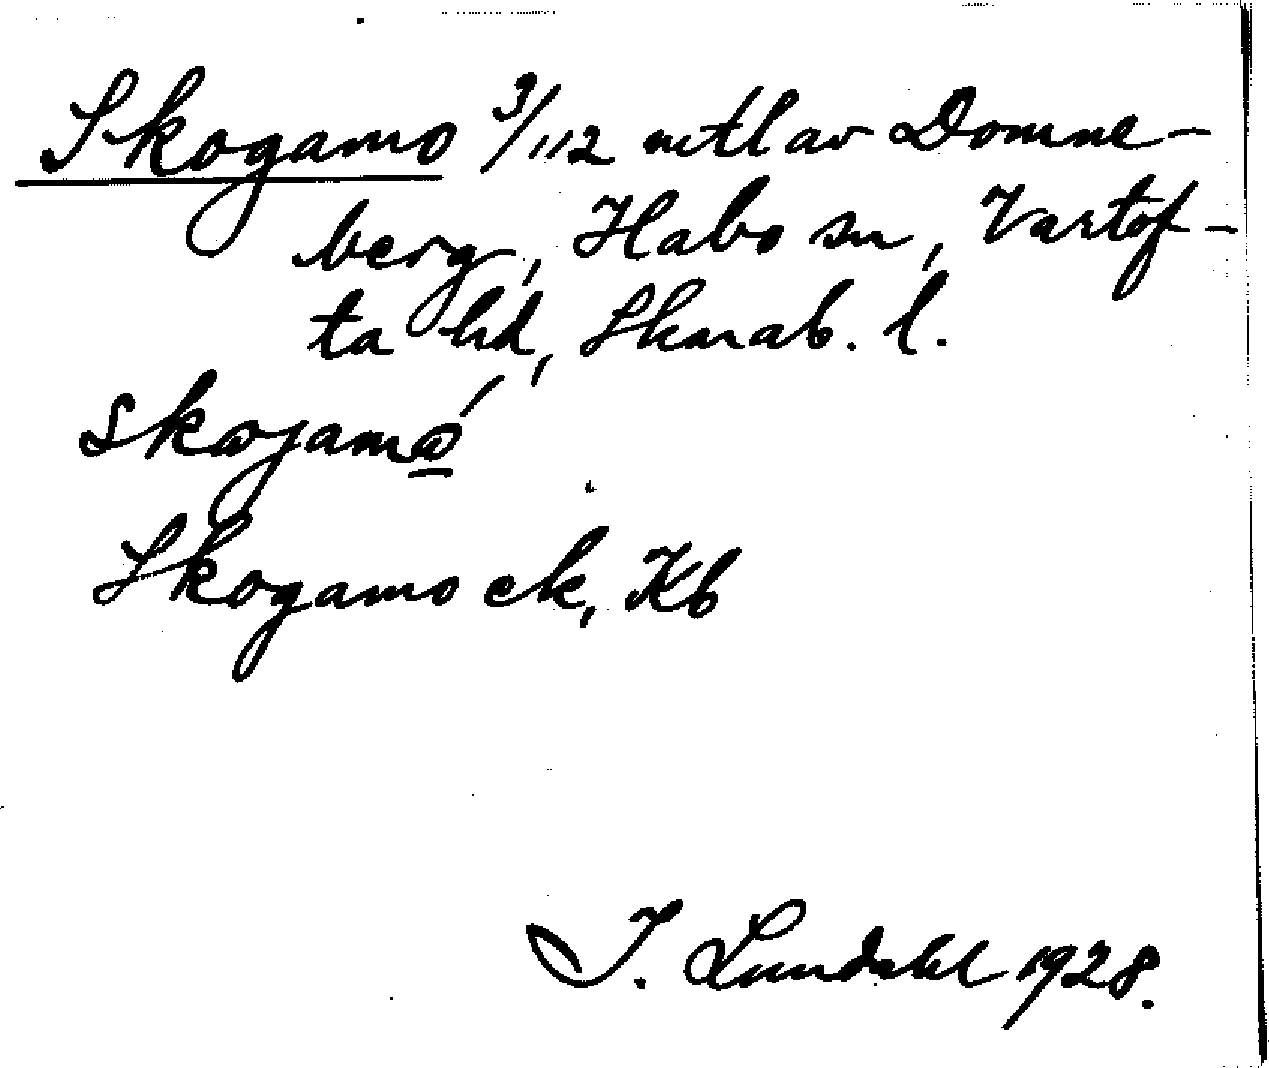 Skogamo 3/112 mtl av Domne-
berg, Habo sn, Vartof-
ta hd, Skarab. l.
skogamo
Skogamo ek, Kb
I. Lundahl 1928.